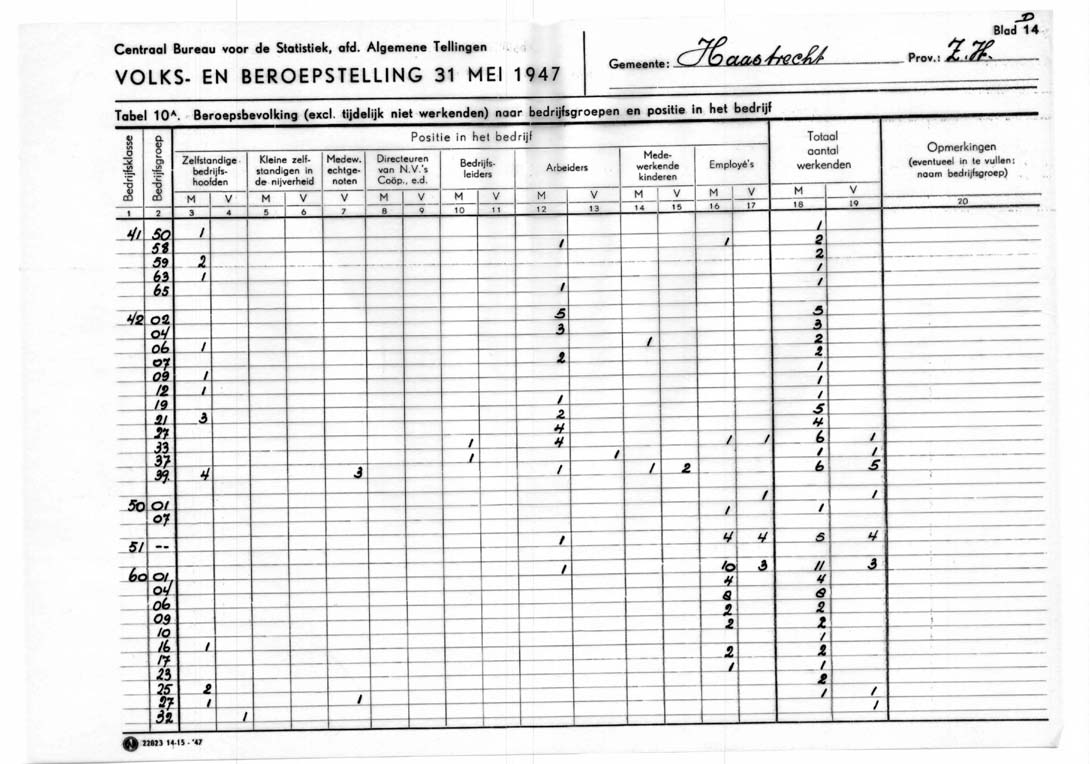 Blad 14 D
Centraal Bureau voor de Statistiek, afd. Algemene Tellingen
VOLKS- EN BEROEPSTELLING 31 MEI 1947
Gemeente: Haastrecht Prov.: Z.H.
Tabel 10A. Beroepsbevolking (excl. tijdelijk niet werkenden) naar bedrijfsgroepen en positie in het bedrijf
Bedrijfsklasse
Bedrijfsgroep
Positie in het bedrijf
Zelfstandige bedrijfs-hoofden
Kleine zelf-standigen in de nijverheid
Medew. echtge-noten
Directeuren van N.V.'s Coöp., e.d.
Bedrijfs-leiders
Arbeiders
Mede-werkende kinderen
Employé's
Totaal aantal werkenden
Opmerkingen (eventueel in te vullen: naam bedrijfsgroep)
M V M V V M V M V M V M V M V M V
1 2 3 4 5 6 7 8 9 10 11 12 13 14 15 16 17 18 19 20
41 50 1 1
58 1 1 2
59 2 2
63 1 1
65 1 1
42 02 5 5
04 3 3
06 1 1 2
07 2 2
09 1 1
12 1 1
19 1 1
21 3 2 5
27 4 4
33 1 4 1 1 6 1
37 1 1 1 1
39 4 3 1 1 2 6 5
50 01 1 1
07 1 1
51 -- 1 4 4 5 4
60 01 1 10 3 11 3
04 4 4
06 8 8
09 2 2
10 2 2
16 1 1
17 2 2
23 1 1
25 2 2
27 1 1 1 1
32 1 1
N 22823 14-15 - '47